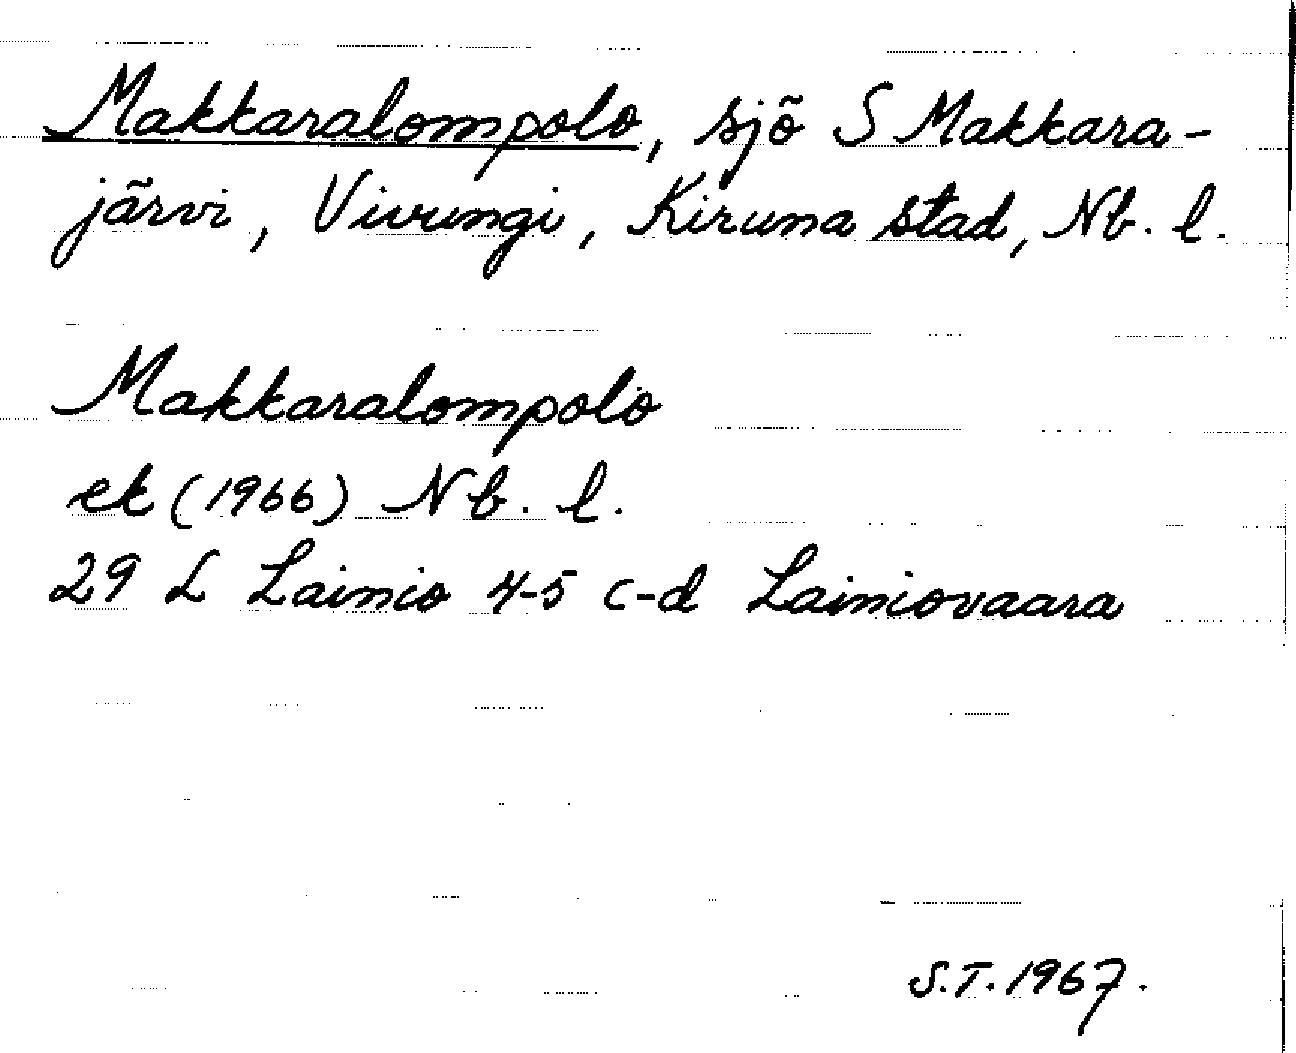 Makkaralompolo, sjö S Makkara-
järvi, Vivungi, Kiruna stad, Nb. l.
Makkaralompolo
ek (1966) Nb. l.
29 L Lainio 4-5 c-d Lainiovaara
S.T. 1967.